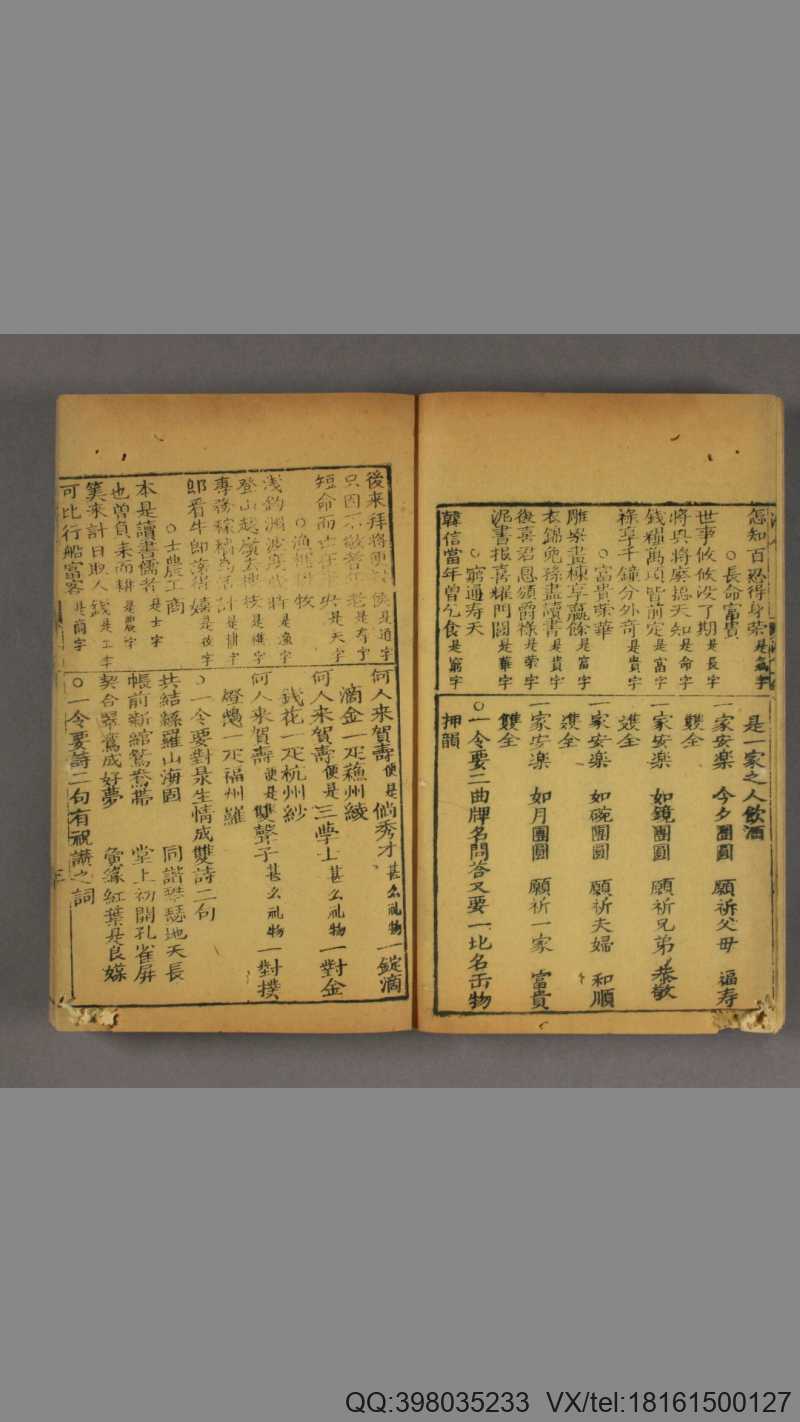 怎知百忍得身荣是氣字
○長命富貴
世事攸攸没了期是長字
將與將察搗天知是命字
錢糧萬項皆前定是富字
禄享千鍾分外奇是貴字
○富貴荣華
雕梁畫棟享嬴餘是富字
衣錦兔孫盡讀書是貴字
後喜君恩頒爵禄是荣字
泥書报喜耀門閭是華字
○窮通寿夭
韓信當年曾乞食是窮字
是一家之人飲酒
一家安楽 今夕團圓 願祈父母 福寿
雙全
一家安楽 如鏡團圓 願祈兄弟 恭敬
雙全
一家安楽 如碗團圓 願祈夫婦 和順
雙全
一家安楽 如月團圓 願祈一家 富貴
雙全
○一令要二曲牌名問答又要一地名缶物
押韻
後来拜將 侯是通字
只因不敬 老是寿字
短命而亡 是夭字
○漁樵 牧
浅釣 將是漁字
登山 枝是樵字
專務稼穡為 計是耕字
郎看牛郎 嬉是牧字
○士農工商
本是讀書儒者是士字
也曾負耒而耕是農字
筭来計日取人錢是工字
可比行船富客是商字
何人来賀壽便是倘秀才甚么礼物一錠滴
滴金一疋蘓州綾
何人来賀壽便是三學士甚么礼物一對金
錢花一疋杭州紗
何人来賀壽便是雙聲子甚么礼物一對撲
燈蛾一疋福州羅
○一令要對景生情成雙詩二句
共結絲羅山海固 同諧琴瑟地天長
帳前新綰鴛鴦帶 堂上初開孔雀屏
契合翠鸞成好夢 賡 紅葉是良媒
○一令要詩二句有祝讚之詞
QQ:398035233 VX/tel:18161500127